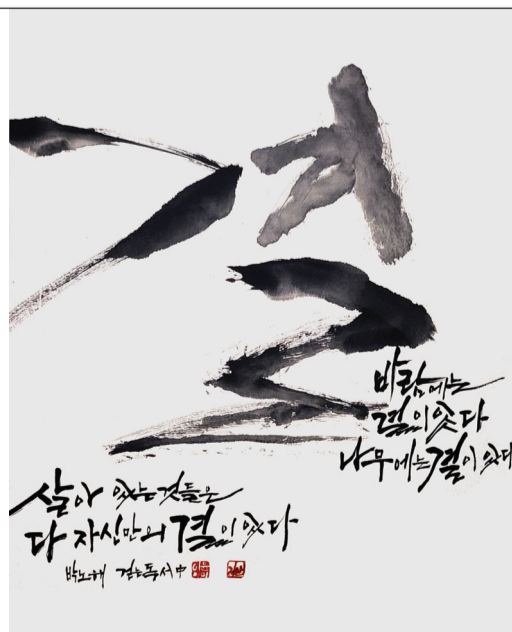 결
바람에는
결이 있다
나무에는 결이 있다
살아 있는 것들은
다 자신만의 결이 있다
박노해 걷는 독서 中